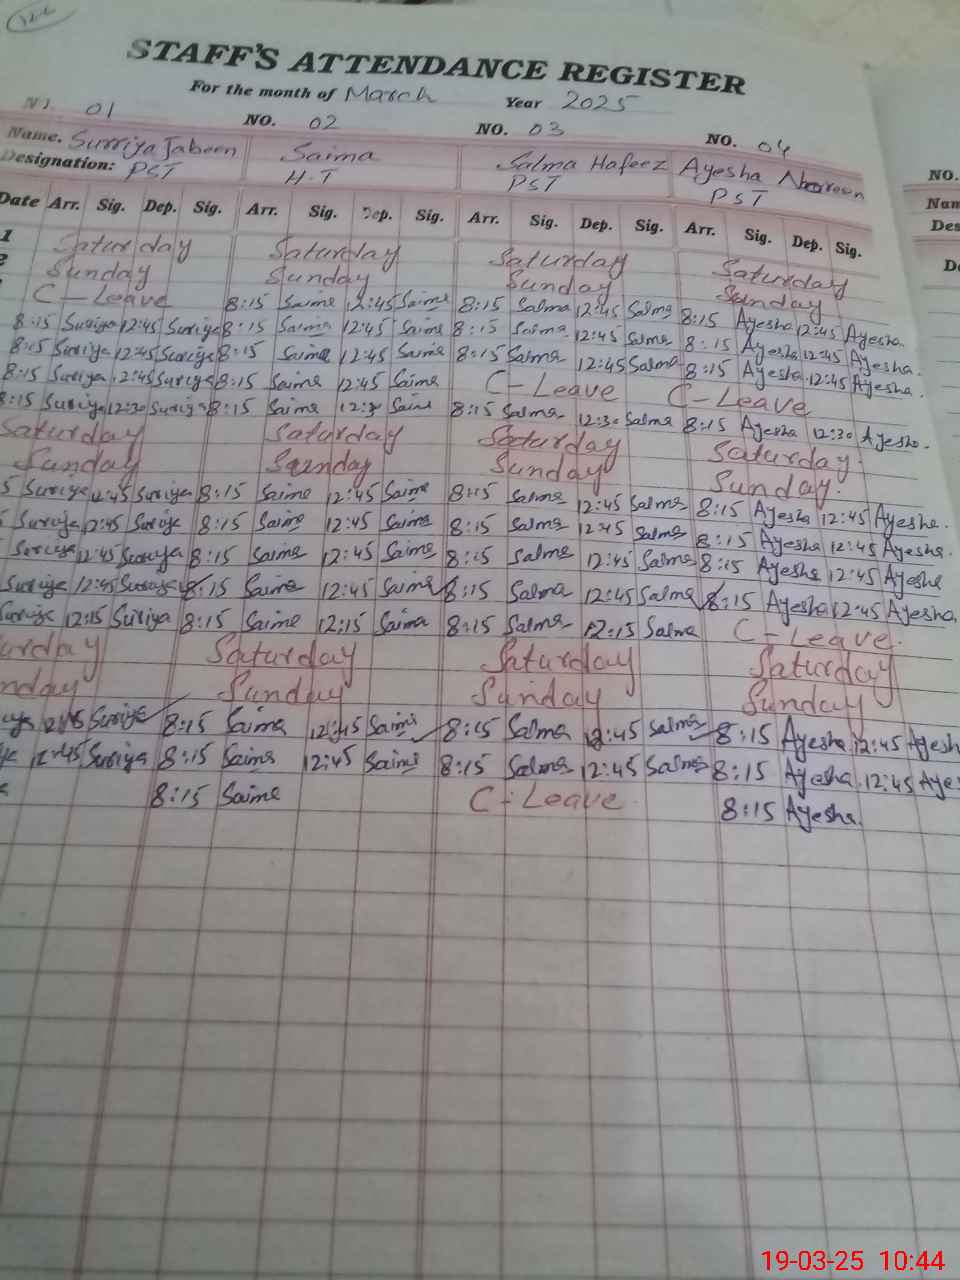 STAFF'S ATTENDANCE REGISTER
For the month of March Year 2025
01 NO. 02 NO. 03 NO. 04 NO.
Name. Surriya Jabeen Saima Salma Hafeez Ayesha Nam
Designation: PST H.T PST PST Des
Date Arr. Sig. Dep. Sig. Arr. Sig. Dep. Sig. Arr. Sig. Dep. Sig. Arr. Sig. Dep. Sig. D
1 Saturday Saturday Saturday Saturday
2 Sunday Sunday Sunday Sunday
C-Leave 8:15 Saima 12:45 Saima 8:15 Salma 12:45 Salma 8:15 Ayesha 12:45 Ayesha.
8:15 Suriya 12:45 Suriya 8:15 Saima 12:45 Saima 8:15 Salma 12:45 Salma 8:15 Ayesha 12:45 Ayesha.
8:15 Suriya 12:45 Suriya 8:15 Saima 12:45 Saima 8:15 Salma 12:45 Salma 8:15 Ayesha 12:45 Ayesha.
8:15 Suriya 12:45 Suriya 8:15 Saima 12:45 Saima C-Leave C-Leave
8:15 Suriya 12:30 Suriya 8:15 Saima Saima 8:15 Salma 12:30 Salma 8:15 Ayesha 12:30 Ayesha.
Saturday Saturday Saturday Saturday.
Sunday Sunday Sunday Sunday.
5 Suriya 12:45 Suriya 8:15 Saima 12:45 Saima 8:15 Salma 12:45 Salma 8:15 Ayesha 12:45 Ayesha.
Suriya 12:45 Suriya 8:15 Saima 12:45 Saima 8:15 Salma 12:45 Salma 8:15 Ayesha 12:45 Ayesha.
Suriya 12:45 Suriya 8:15 Saima 12:45 Saima 8:15 Salma 12:45 Salma 8:15 Ayesha 12:45 Ayesha
Suriya 12:45 Suriya 8:15 Saima 12:45 Saima 8:15 Salma 12:45 Salma 8:15 Ayesha 12:45 Ayesha.
Suriya 12:15 Suriya 8:15 Saima 12:15 Saima 8:15 Salma 12:15 Salma C-Leave.
urday Saturday Saturday Saturday
nday Sunday Sunday Sunday
Suriya 8:15 Saima 12:45 Saima 8:15 Salma 12:45 Salma 8:15 Ayesha 12:45 Ayesh
12:45 Suriya 8:15 Saima 12:45 Saima 8:15 Salma 12:45 Salma 8:15 Ayesha 12:45 Aye
8:15 Saima C-Leave. 8:15 Ayesha.
19-03-25 10:44